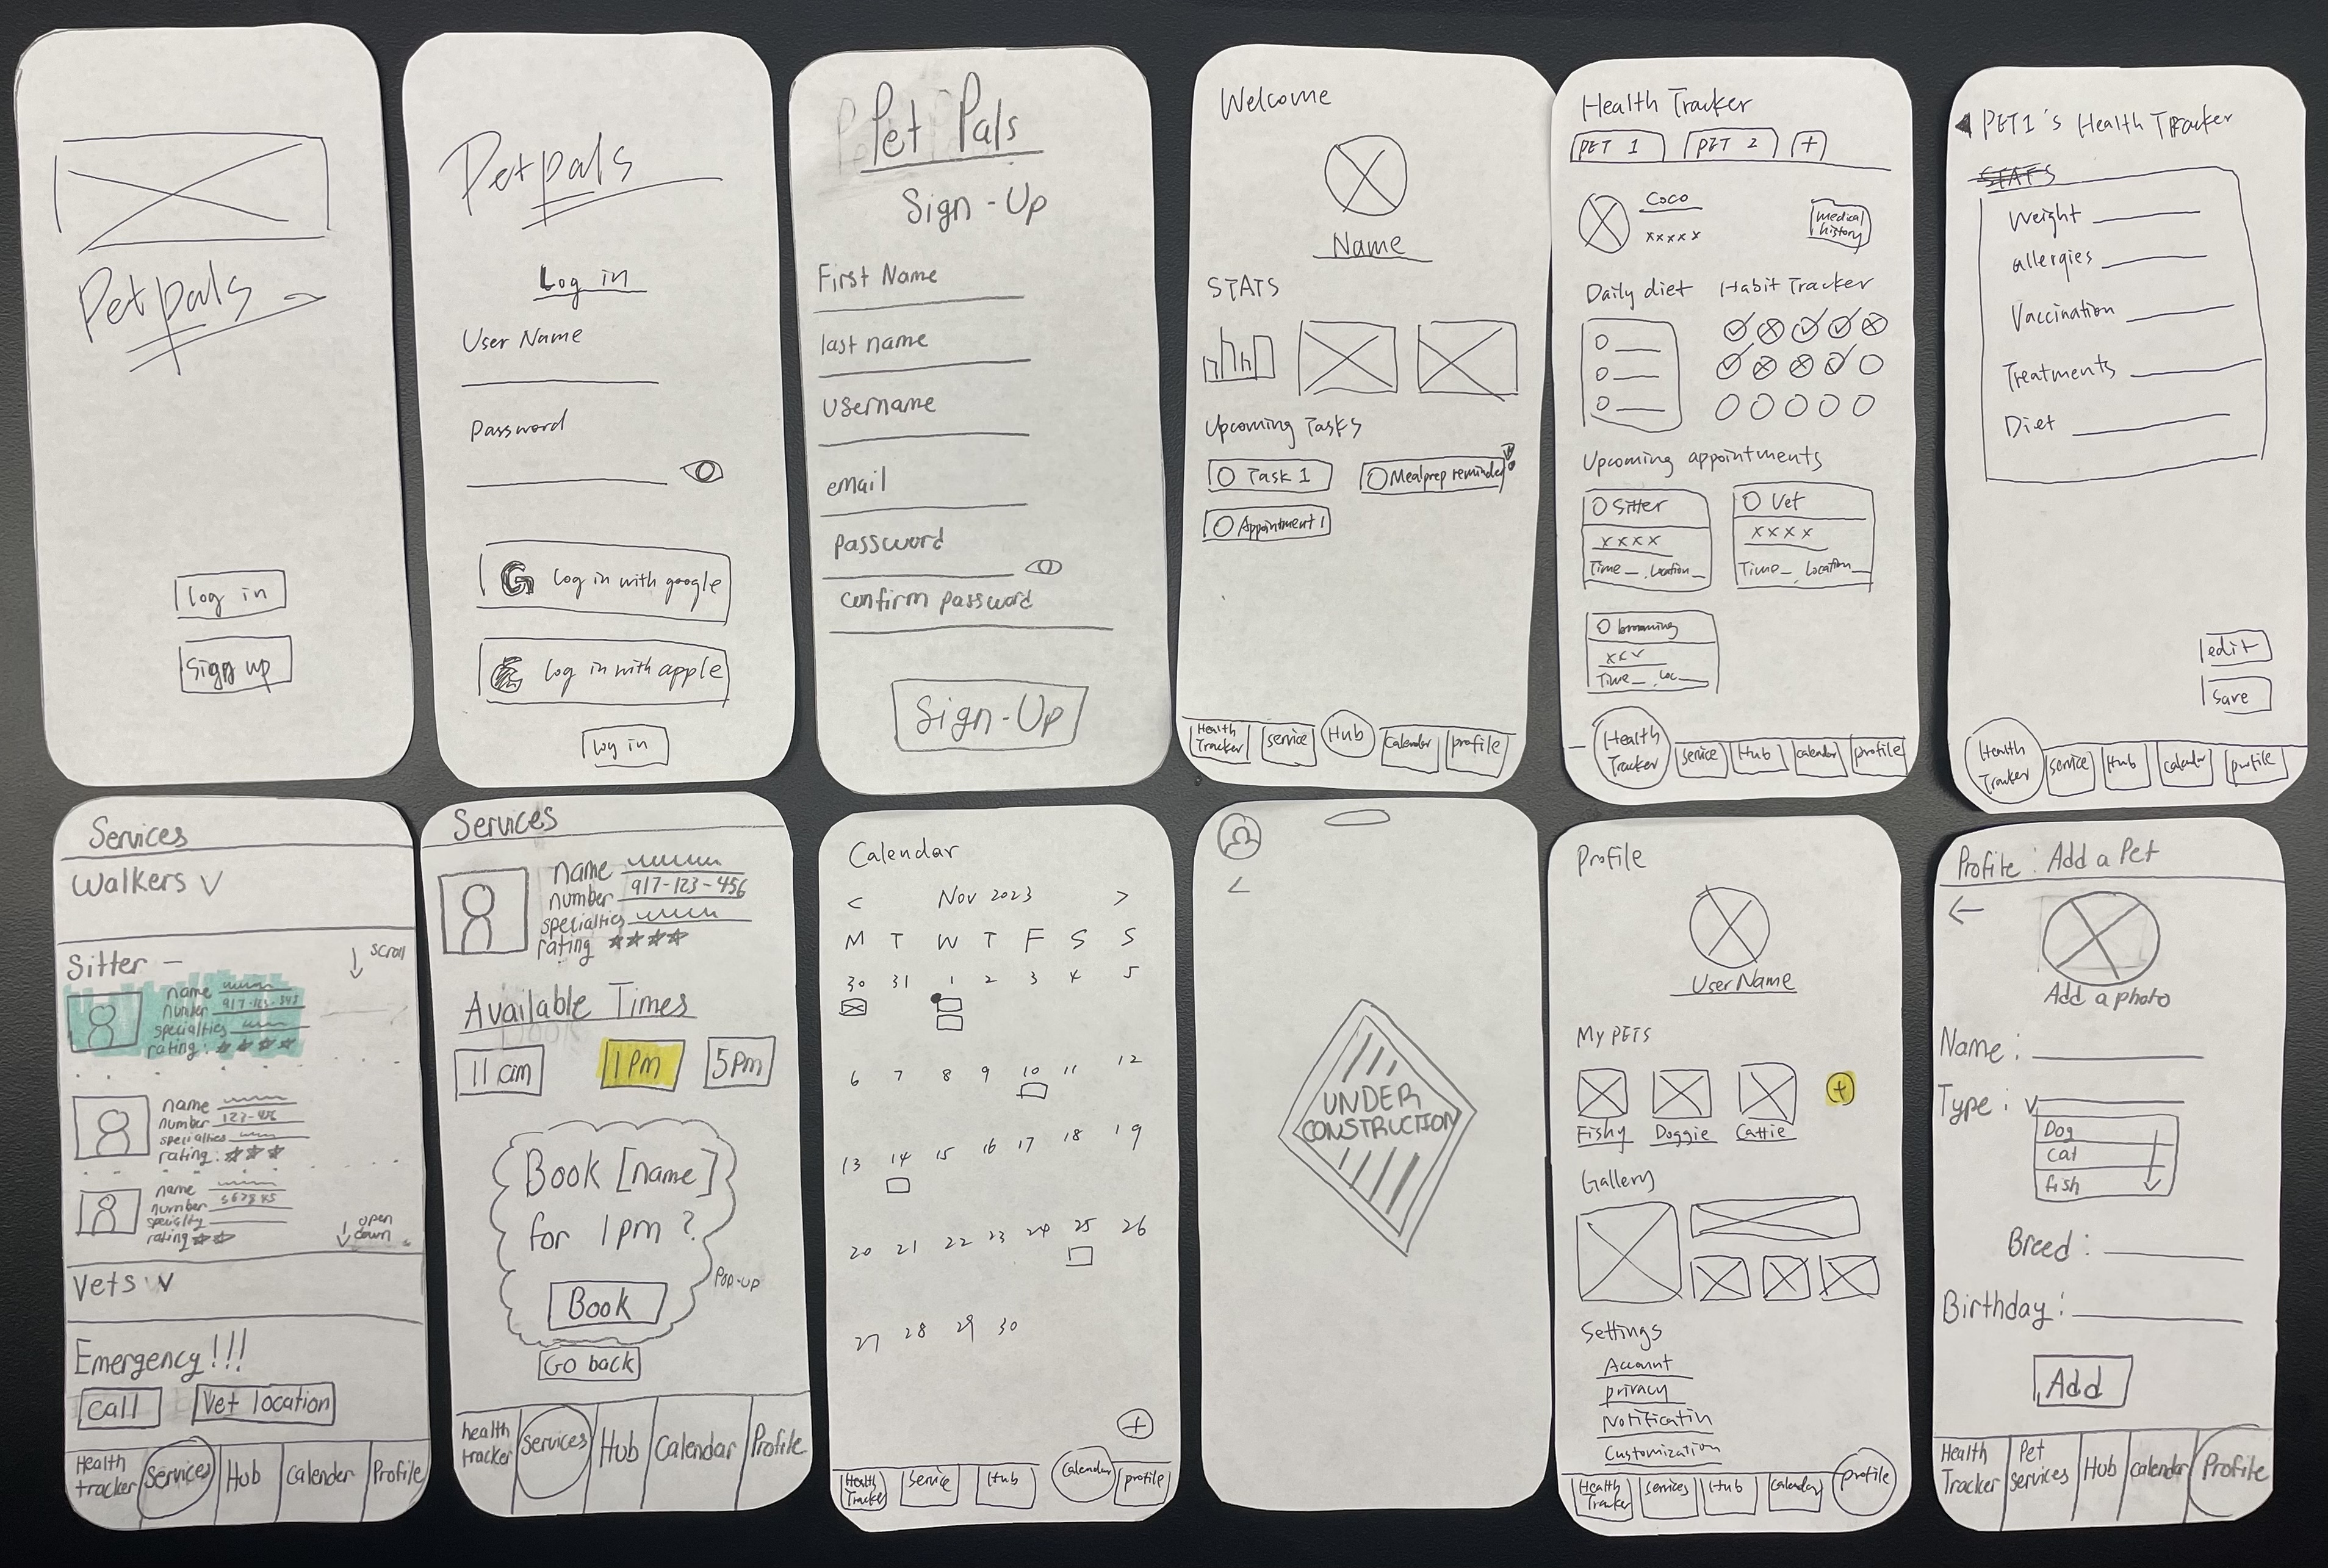 Petpals
Log in
Sign up
Petpals
Log in
User Name
Password
G Log in with google
Log in with apple
Log in
Pet Pals
Sign-Up
First Name
last name
username
email
password
confirm password
Sign-Up
Welcome
Name
STATS
Upcoming Tasks
Task 1
Mealprep reminder
Appointment 1
Health Tracker
service
Hub
Calendar
profile
Health Tracker
PET 1
PET 2
+
Coco
xxxxx
medical history
Daily diet
Habit Tracker
Upcoming appointments
Sitter
xxxx
Time_ Location_
Vet
xxxx
Time_, Location_
xxx
Time_ Loc_
Health Tracker
service
Hub
calendar
profile
PET1's Health Tracker
STATS
Weight
allergies
Vaccination
Treatments
Diet
edit
save
Health Tracker
service
Hub
calendar
profile
Services
Walkers v
Sitter —
scroll
name
number 917-123-545
specialties
rating:
name
number 123-456
specialties
rating:
name
number 567845
specialty
rating
open down
Vets v
Emergency!!!
call
Vet location
Health tracker
Services
Hub
calender
Profile
Services
name
number 917-123-456
specialties
rating
Available Times
11 am
1 pm
5pm
Book [name]
for 1pm?
Book
POP-UP
Go back
health tracker
services
Hub
Calendar
Profile
Calendar
< Nov 2023 >
M T W T F S S
30 31 1 2 3 4 5
6 7 8 9 10 11 12
13 14 15 16 17 18 19
20 21 22 23 24 25 26
27 28 29 30
+
Health Tracker
service
Hub
Calendar
profile
<
UNDER
CONSTRUCTION
Profile
UserName
My PETS
+
Fishy
Doggie
Cattie
Gallery
Settings
Account
privacy
Notificatin
Customization
Health Tracker
services
Hub
Calendar
profile
Profile: Add a Pet
Add a photo
Name:
Type: v
Dog
cat
fish
Breed:
Birthday:
Add
Health Tracker
Pet Services
Hub
calendar
Profile